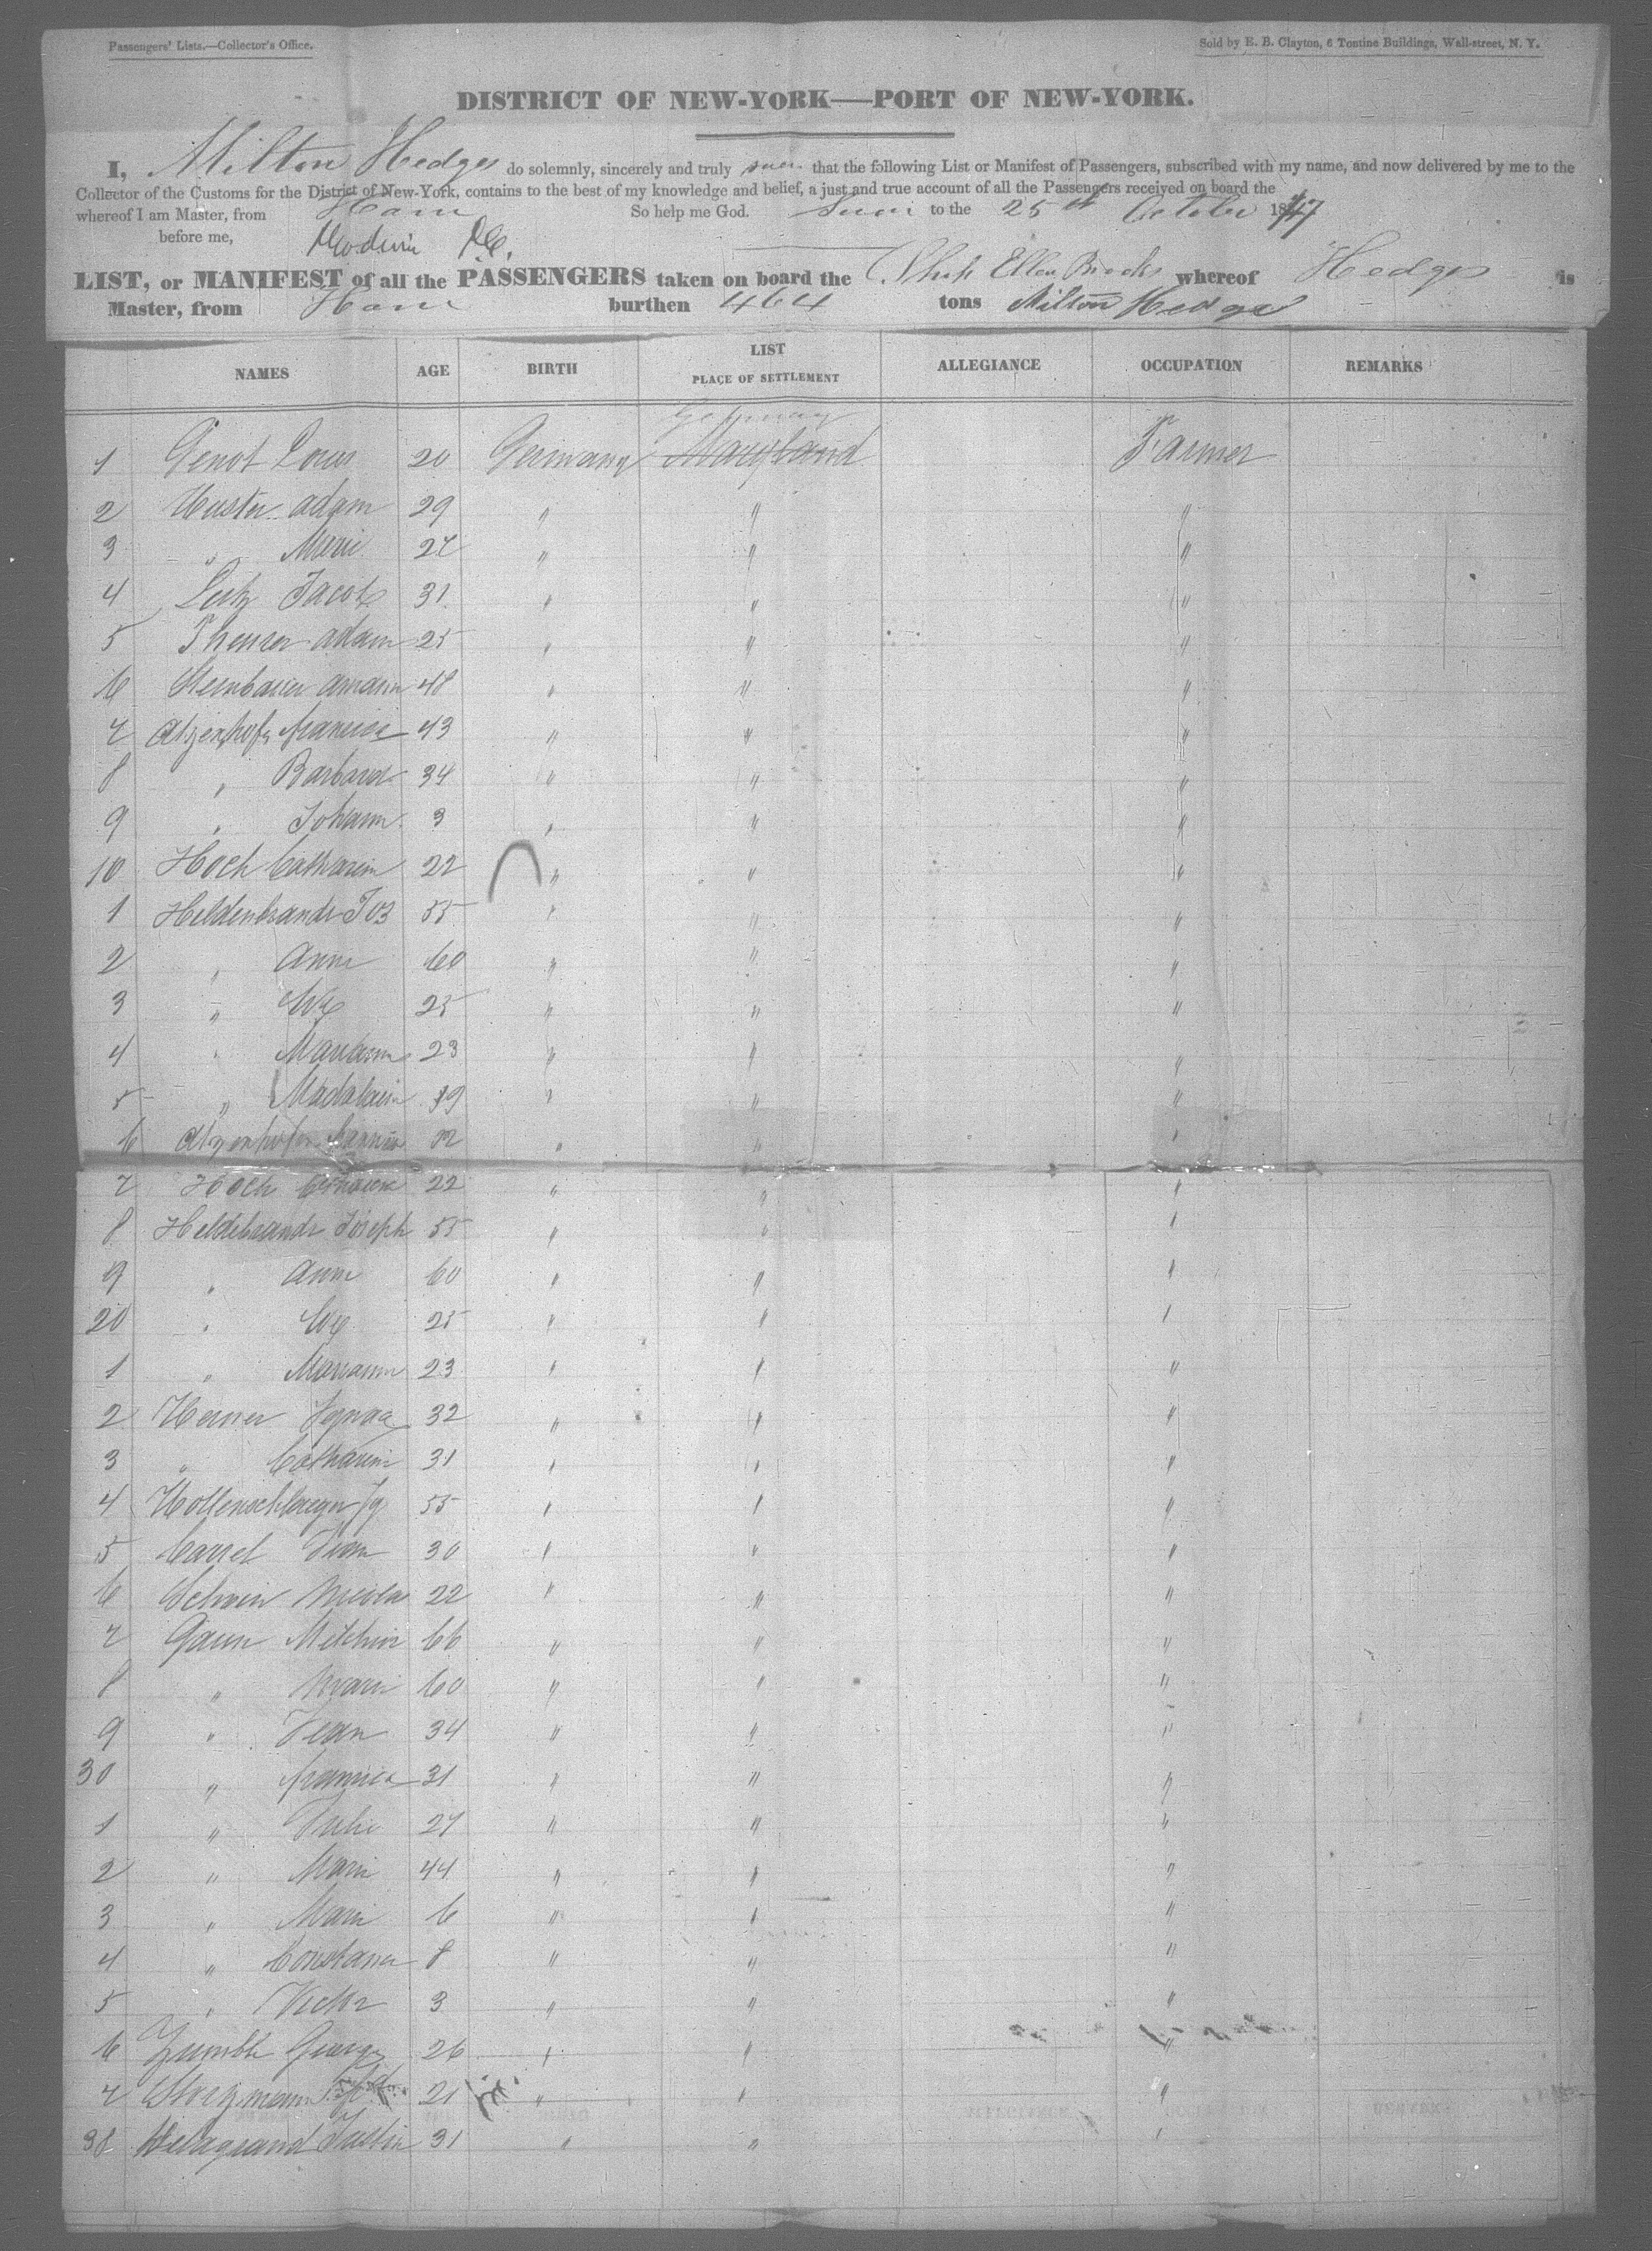 Passengers' Lists.—Collector's Office.
Sold by E. B. Clayton, 6 Tontine Buildings, Wall-street, N. Y.
DISTRICT OF NEW-YORK—PORT OF NEW-YORK.
I, Milton Hedges do solemnly, sincerely and truly that the following List or Manifest of Passengers, subscribed with my name, and now delivered by me to the
Collector of the Customs for the District of New-York, contains to the best of my knowledge and belief, a just and true account of all the Passengers received on board the
whereof I am Master, from So help me God. to the 25th October 1847
before me,
LIST, or MANIFEST of all the PASSENGERS taken on board the Ship Ellen Brooks whereof Hedges is
Master, from burthen 464 tons Milton Hedges
NAMES AGE BIRTH LIST PLACE OF SETTLEMENT ALLEGIANCE OCCUPATION REMARKS
Germany
1 Genot Louis 20 Germany Maryland Farmer
2 Adam 29 " " "
3 " Marie 27 " " "
4 Jacob 31 " " "
5 Theurer Adam 25 " " "
6 48 " " "
7 Francisca 43 " " "
8 " Barbara 34 " " "
9 " Johann 3 " " "
10 Hoch Catharin 22 " " "
1 Heldenbrandt Jos 55 " " "
2 " Anne 60 " " "
3 " 25 " " "
4 " Mariann 23 " " "
5 " Madalain 19 " " "
6 " " "
7 Hoch 22 " " "
8 Heldebrandt Joseph 55 " " "
9 " Anne 60 " " "
20 " 25 " " "
1 " Mariann 23 " " "
2 Ignaz 32 " " "
3 " Catharin 31 " " "
4 Hollenschlaeger Ig 55 " " "
5 Carret Jean 30 " " "
6 Schwin Nicola 22 " " "
7 Gaun Melchior 66 " " "
8 " Marie 60 " " "
9 " Jean 34 " " "
30 " Francisca 31 " " "
1 " Julie 27 " " "
2 " Marie 44 " " "
3 " Marie 6 " " "
4 " Constance 8 " " "
5 " Victor 3 " " "
6 George 26 " " "
7 21 " " "
38 31 " " "